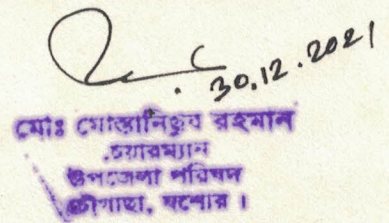 30.12.2021
মোঃ মোস্তানিছুর রহমান
চেয়ারম্যান
উপজেলা পরিষদ
চৌগাছা, যশোর।